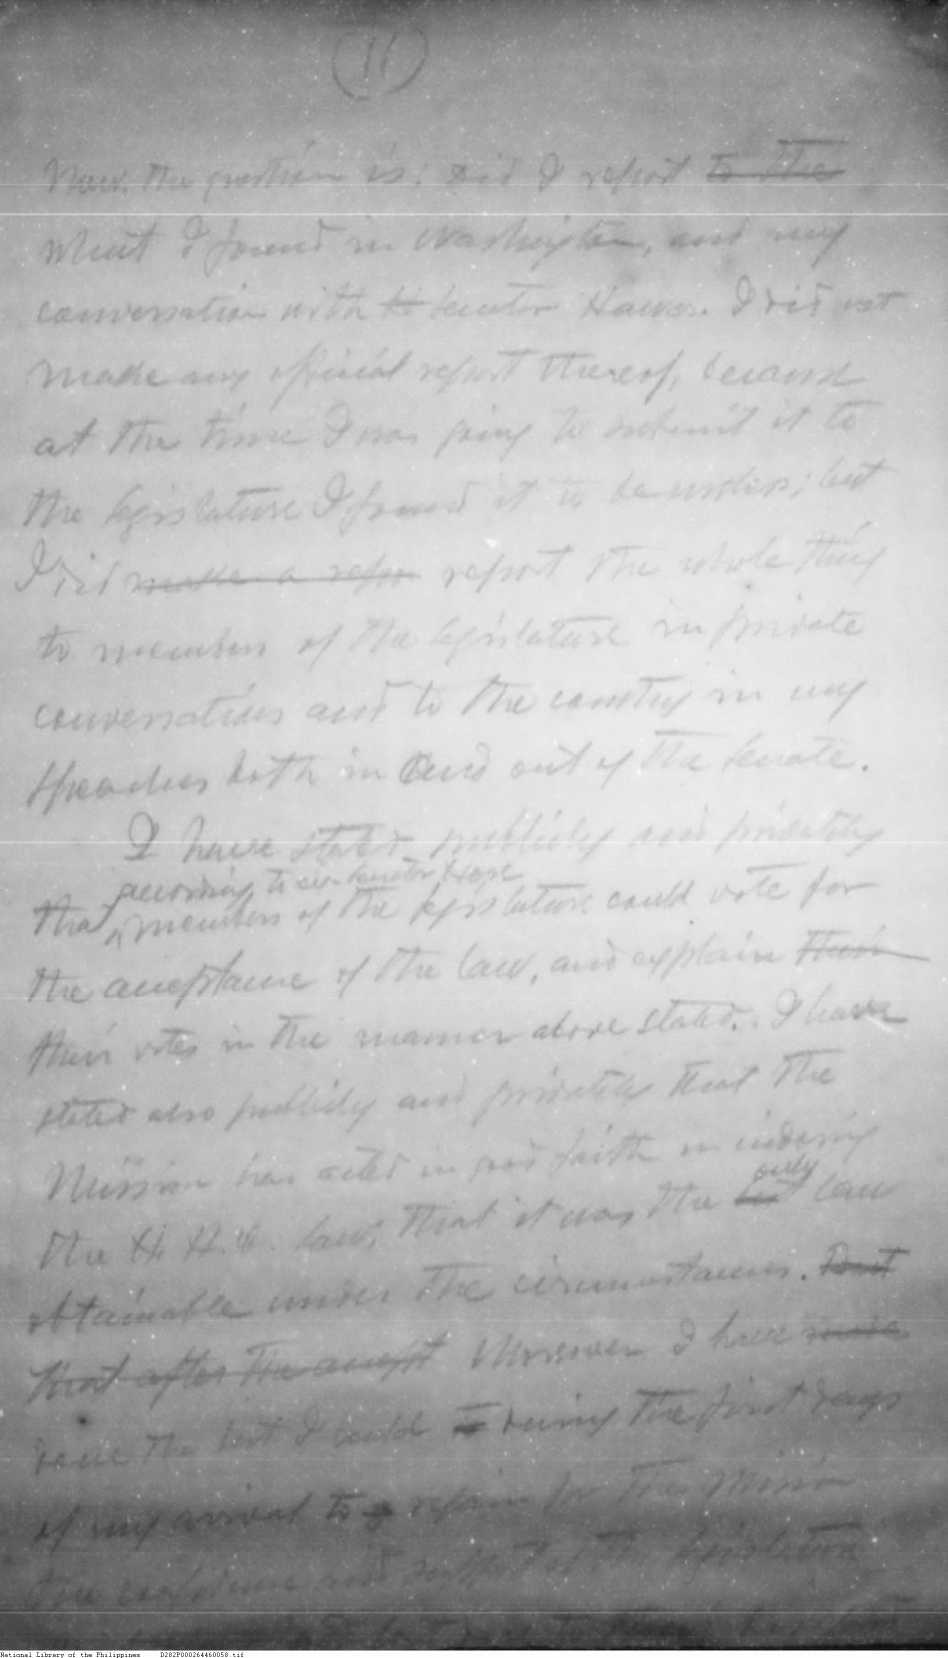 11
Now, the question is: Did I report to the
what I found in Washington, and my
conversation with to Senator Hawes. I did not
make any official report thereof, because
at the time I was going to submit it to
the legislature I found it to be useless; but
I did make a repor report the whole thing
to members of the legislature in private
conversations and to the country in my
speeches both in and out of the Senate.
I have stated publicly and privately
according to Senator
that members of the legislature could vote for
the acceptance of the law, and explain their
their votes in the manner above stated. I have
stated also publicly and privately that the
Mission has acted in good faith in
only
the H. H. C. law, that it was the law
obtainable under the circumstances. But
that after the accept Moreover I have made
done the best I could to during the first days
of my arrival to regain for the Mission
the confidence and support of the legislature
National Library of the Philippines D282P000264460058.tif